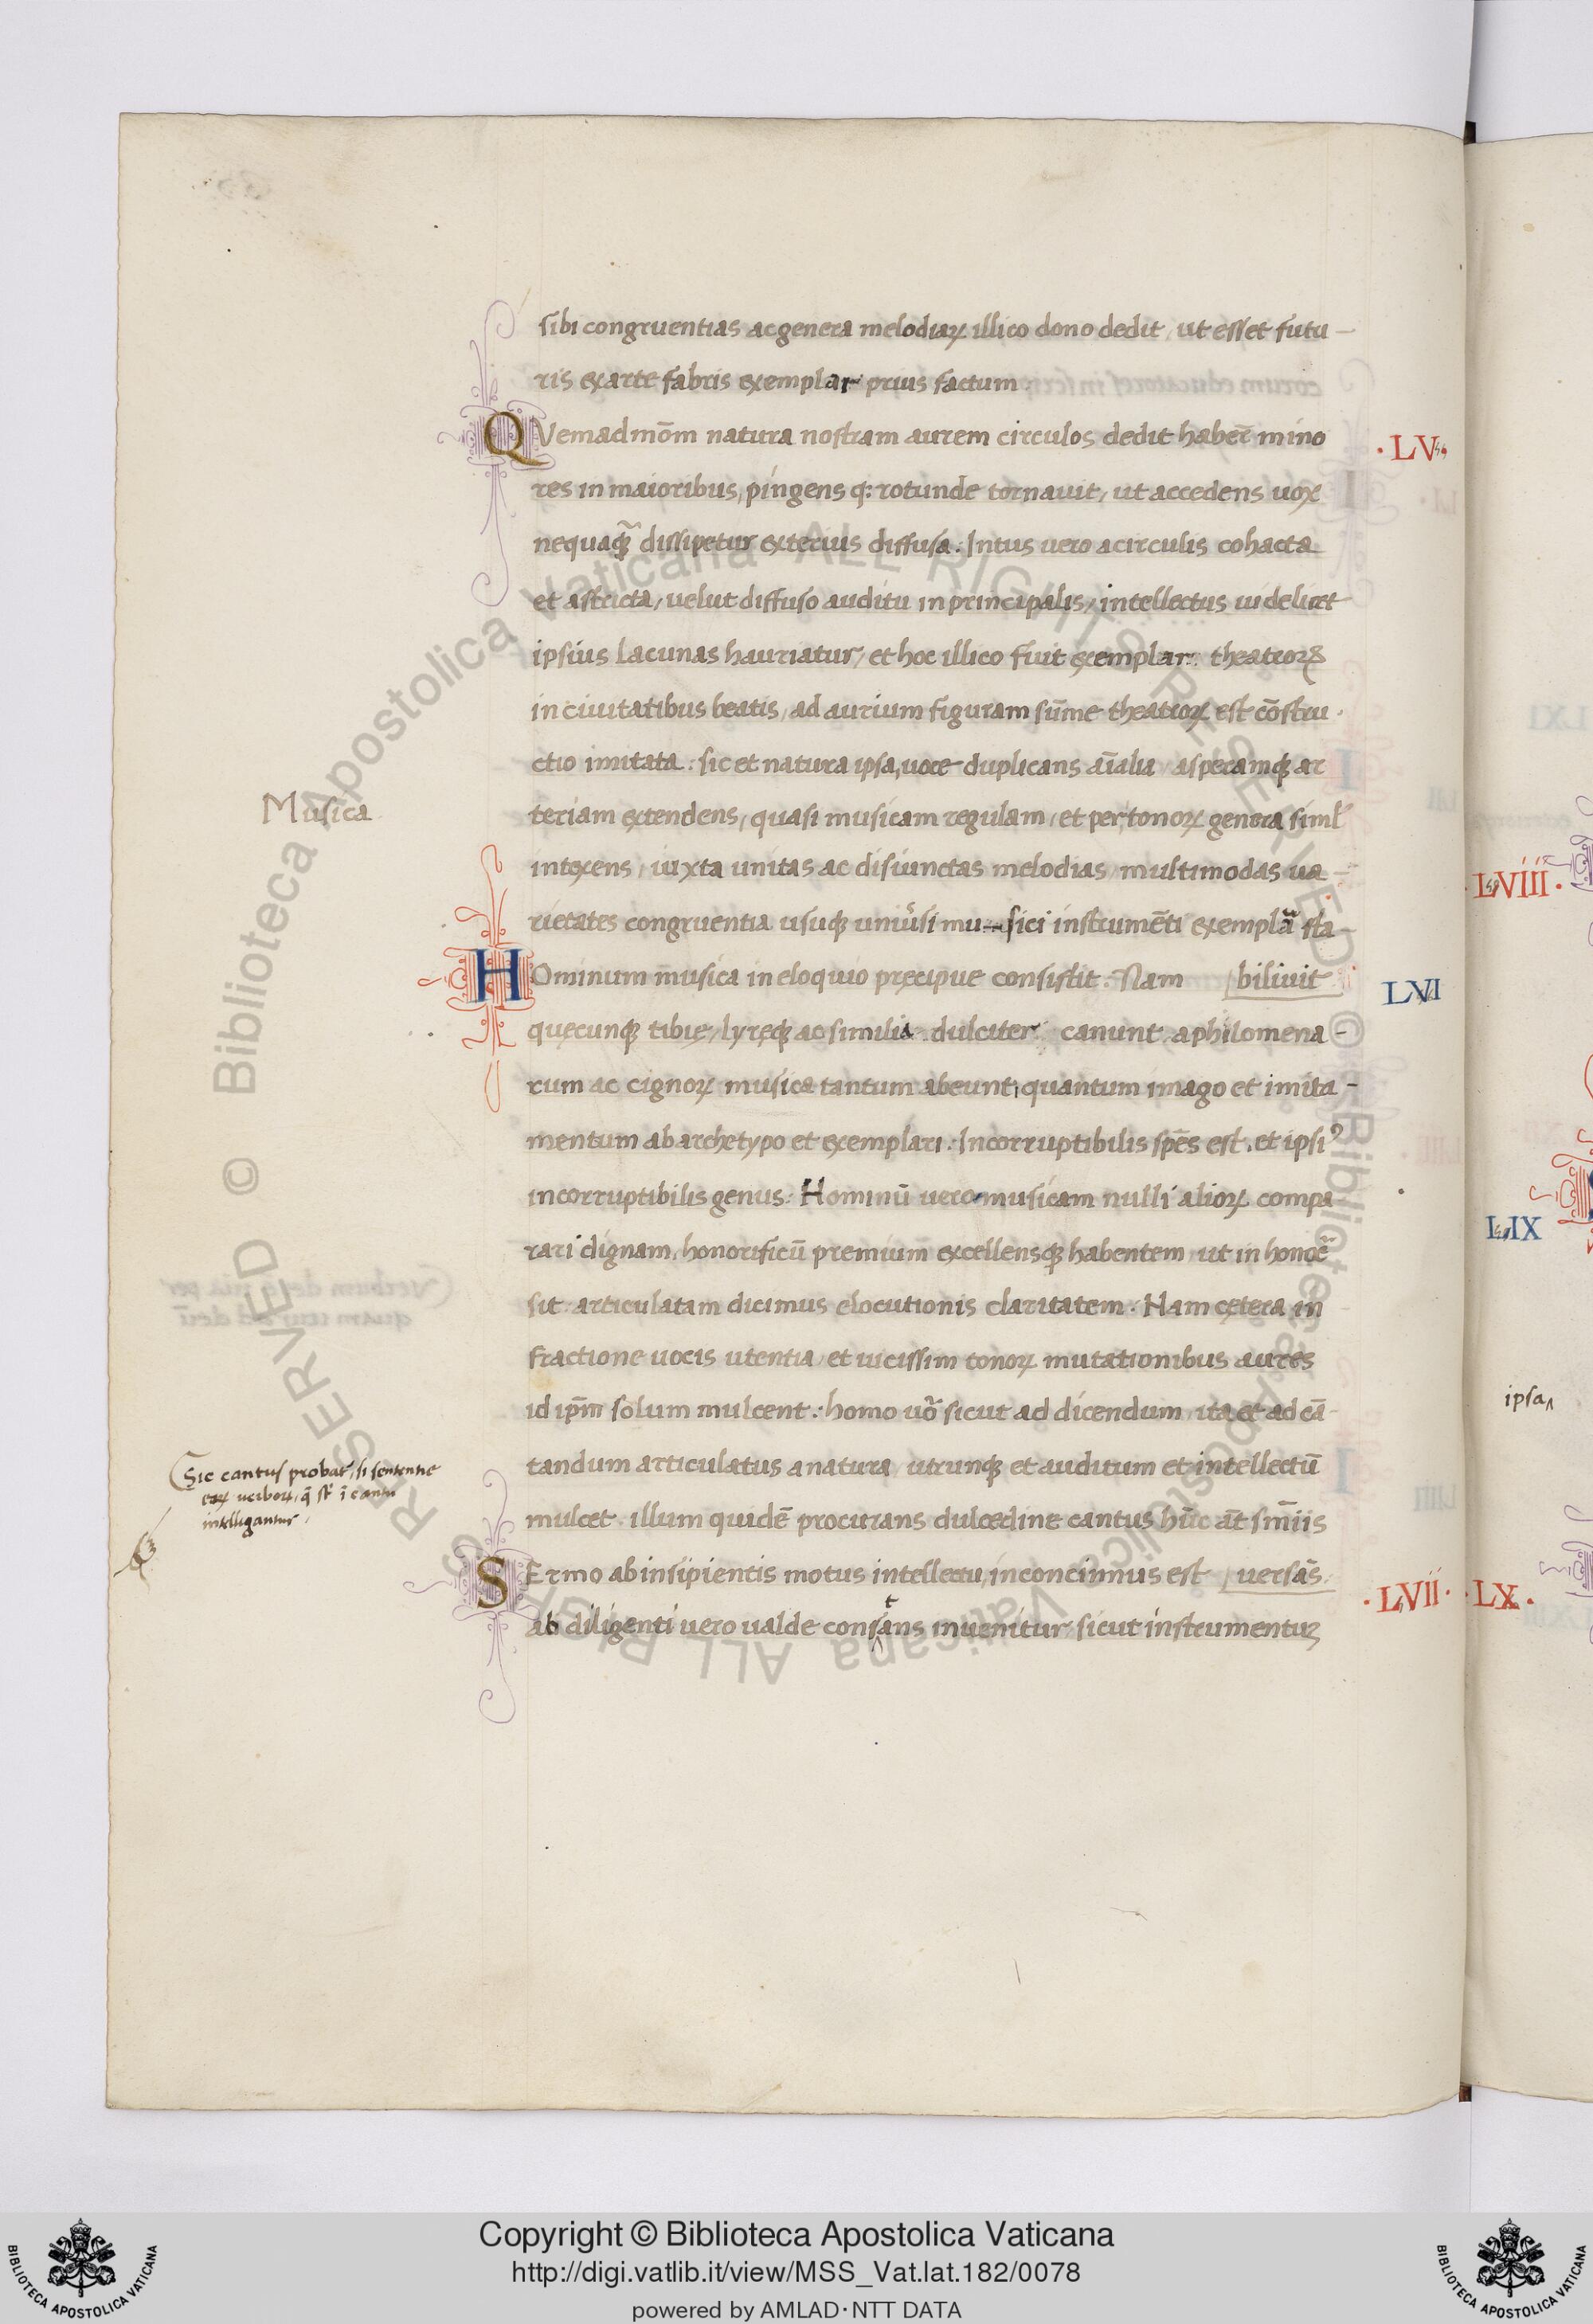 sibi congruentias ac genera melodiaꝝ illico dono dedit, ut esset futu-
ris ex arte fabris exemplar prius factum
QVemadmo᷈m natura nostram aurem circulos dedit haber̄e mino
res in maioribus, pingens q: rotunde tornavit, ut accedens uox
nequaqᷓ dissipetur exterius diffusa. Intus vero a circulis cohacta
et astricta, velut diffuso auditu in principalis, intellectus uidelicet
ipsius lacunas hauriatur, et hoc illico fuit exemplar: theatroꝝ
in ciuitatibus beatis, ad aurium figuram su᷈me theatroꝝ est co᷈stru-
ctio imitata: sic et natura ipsa, uoce duplicans ai᷈alia asperamqꝫ ar
teriam extendens, quasi musicam regulam, et per tonoꝝ genera siml̄
intexens, iuxta unitas ac disiunctas melodias, multimodas ua-
rietates congruentia usuqꝫ uniūsi mu-sici instrume᷈ti exempla᷈ sta-
HOminum musica in eloquio precipue consistit. Nam biliuit
quęcunqꝫ tibię, lyręqꝫ ac similia dulciter canunt a philomena-
rum ac cignoꝝ musica tantum abeunt, quantum imago et imita-
mentum ab archetypo et exemplari. Incorruptibilis spe᷈s est, et ipsiꝰ
incorruptibilis genus: Hominū vero musicam nulli alioꝝ compa
rari dignam, honorificū premium excellensqꝫ habentem, ut in honor̄e
sit articulatam dicimus elocutionis claritatem. Nam cętera in
fractione uocis utentia, et uicissim tonoꝝ mutationibus aures
id ip᷈m solum mulcent: homo uo᷈ sicut ad dicendum, ita et ad cā-
tandum articulatus a natura, utrunqꝫ et auditum et intellectū
mulcet. illum quidē procurans dulcedine cantus hu᷈c a᷈t sm᷈iis
SErmo ab insipientis motus intellectu, inconcinnus est versa᷈s
ab diligenti vero valde consᵗans inuenitur, sicut instrumentuꝫ
Musica
Sic cantus probat᷑, si sententie
eaꝝ verboꝝ, q̄ st᷑ i᷈ cantu
intelligantur,
· LV
LVI
· LVII ·
· LVIII ·
LIX
ipsa
· LX ·
Biblioteca Apostolica Vaticana ALL RIGHTS RESERVED ©
Biblioteca Apostolica Vaticana ALL RIGHTS RESERVED ©
Copyright © Biblioteca Apostolica Vaticana
http://digi.vatlib.it/view/MSS_Vat.lat.182/0078
powered by AMLAD·NTT DATA
BIBLIOTECA APOSTOLICA VATICANA
BIBLIOTECA APOSTOLICA VATICANA